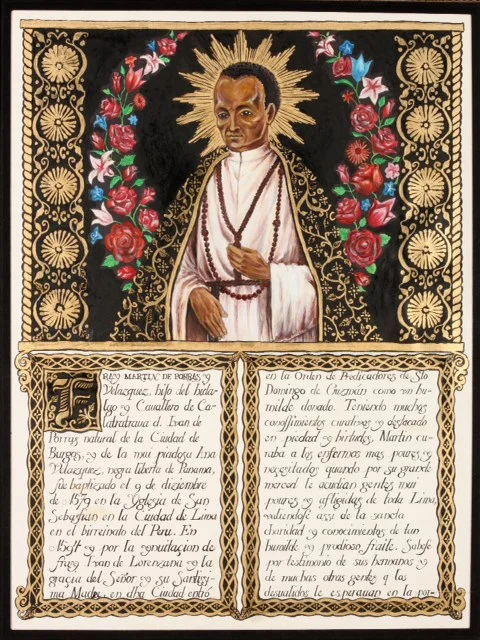 FRAY MARTIN DE PORRAS y
Velazquez, hijo del hidal-
go y Cavallero de Ca-
latradrava d. Ivan de
Porras natural de la Ciudad de
Burgos, y de la mui piadosa Ana
Velazquez, negra liberta de Panama,
fue baptizado el 9 de diciembre
de 1579 en la Yglesia de San
Sebastian en la Ciudad de Lima
en el birreinato del Peru. En
y por la
fray Ivan de Lorenzana y la
gracia del Señor y su Santisi-
ma Madre en dha Ciudad entró
en la Orden de Predicadores de Sto
Domingo de Guzmán como un hu-
milde donado. Teniendo muchos
conossimientos curativos y destacado
en piedad y birtudes, Martin cu-
raba a los enfermos mas pobres y
necesitados quando por su grande
merced le acudian gentes mui
poures y afligidas de toda Lima
valiendose assi de la sancta
charidad y conocimientos de tan
humilde y prodijoso fraile. Sabese
por testimonio de sus hermanos y
de muchas otras gentes q los
desualidos le esperauan en la por-